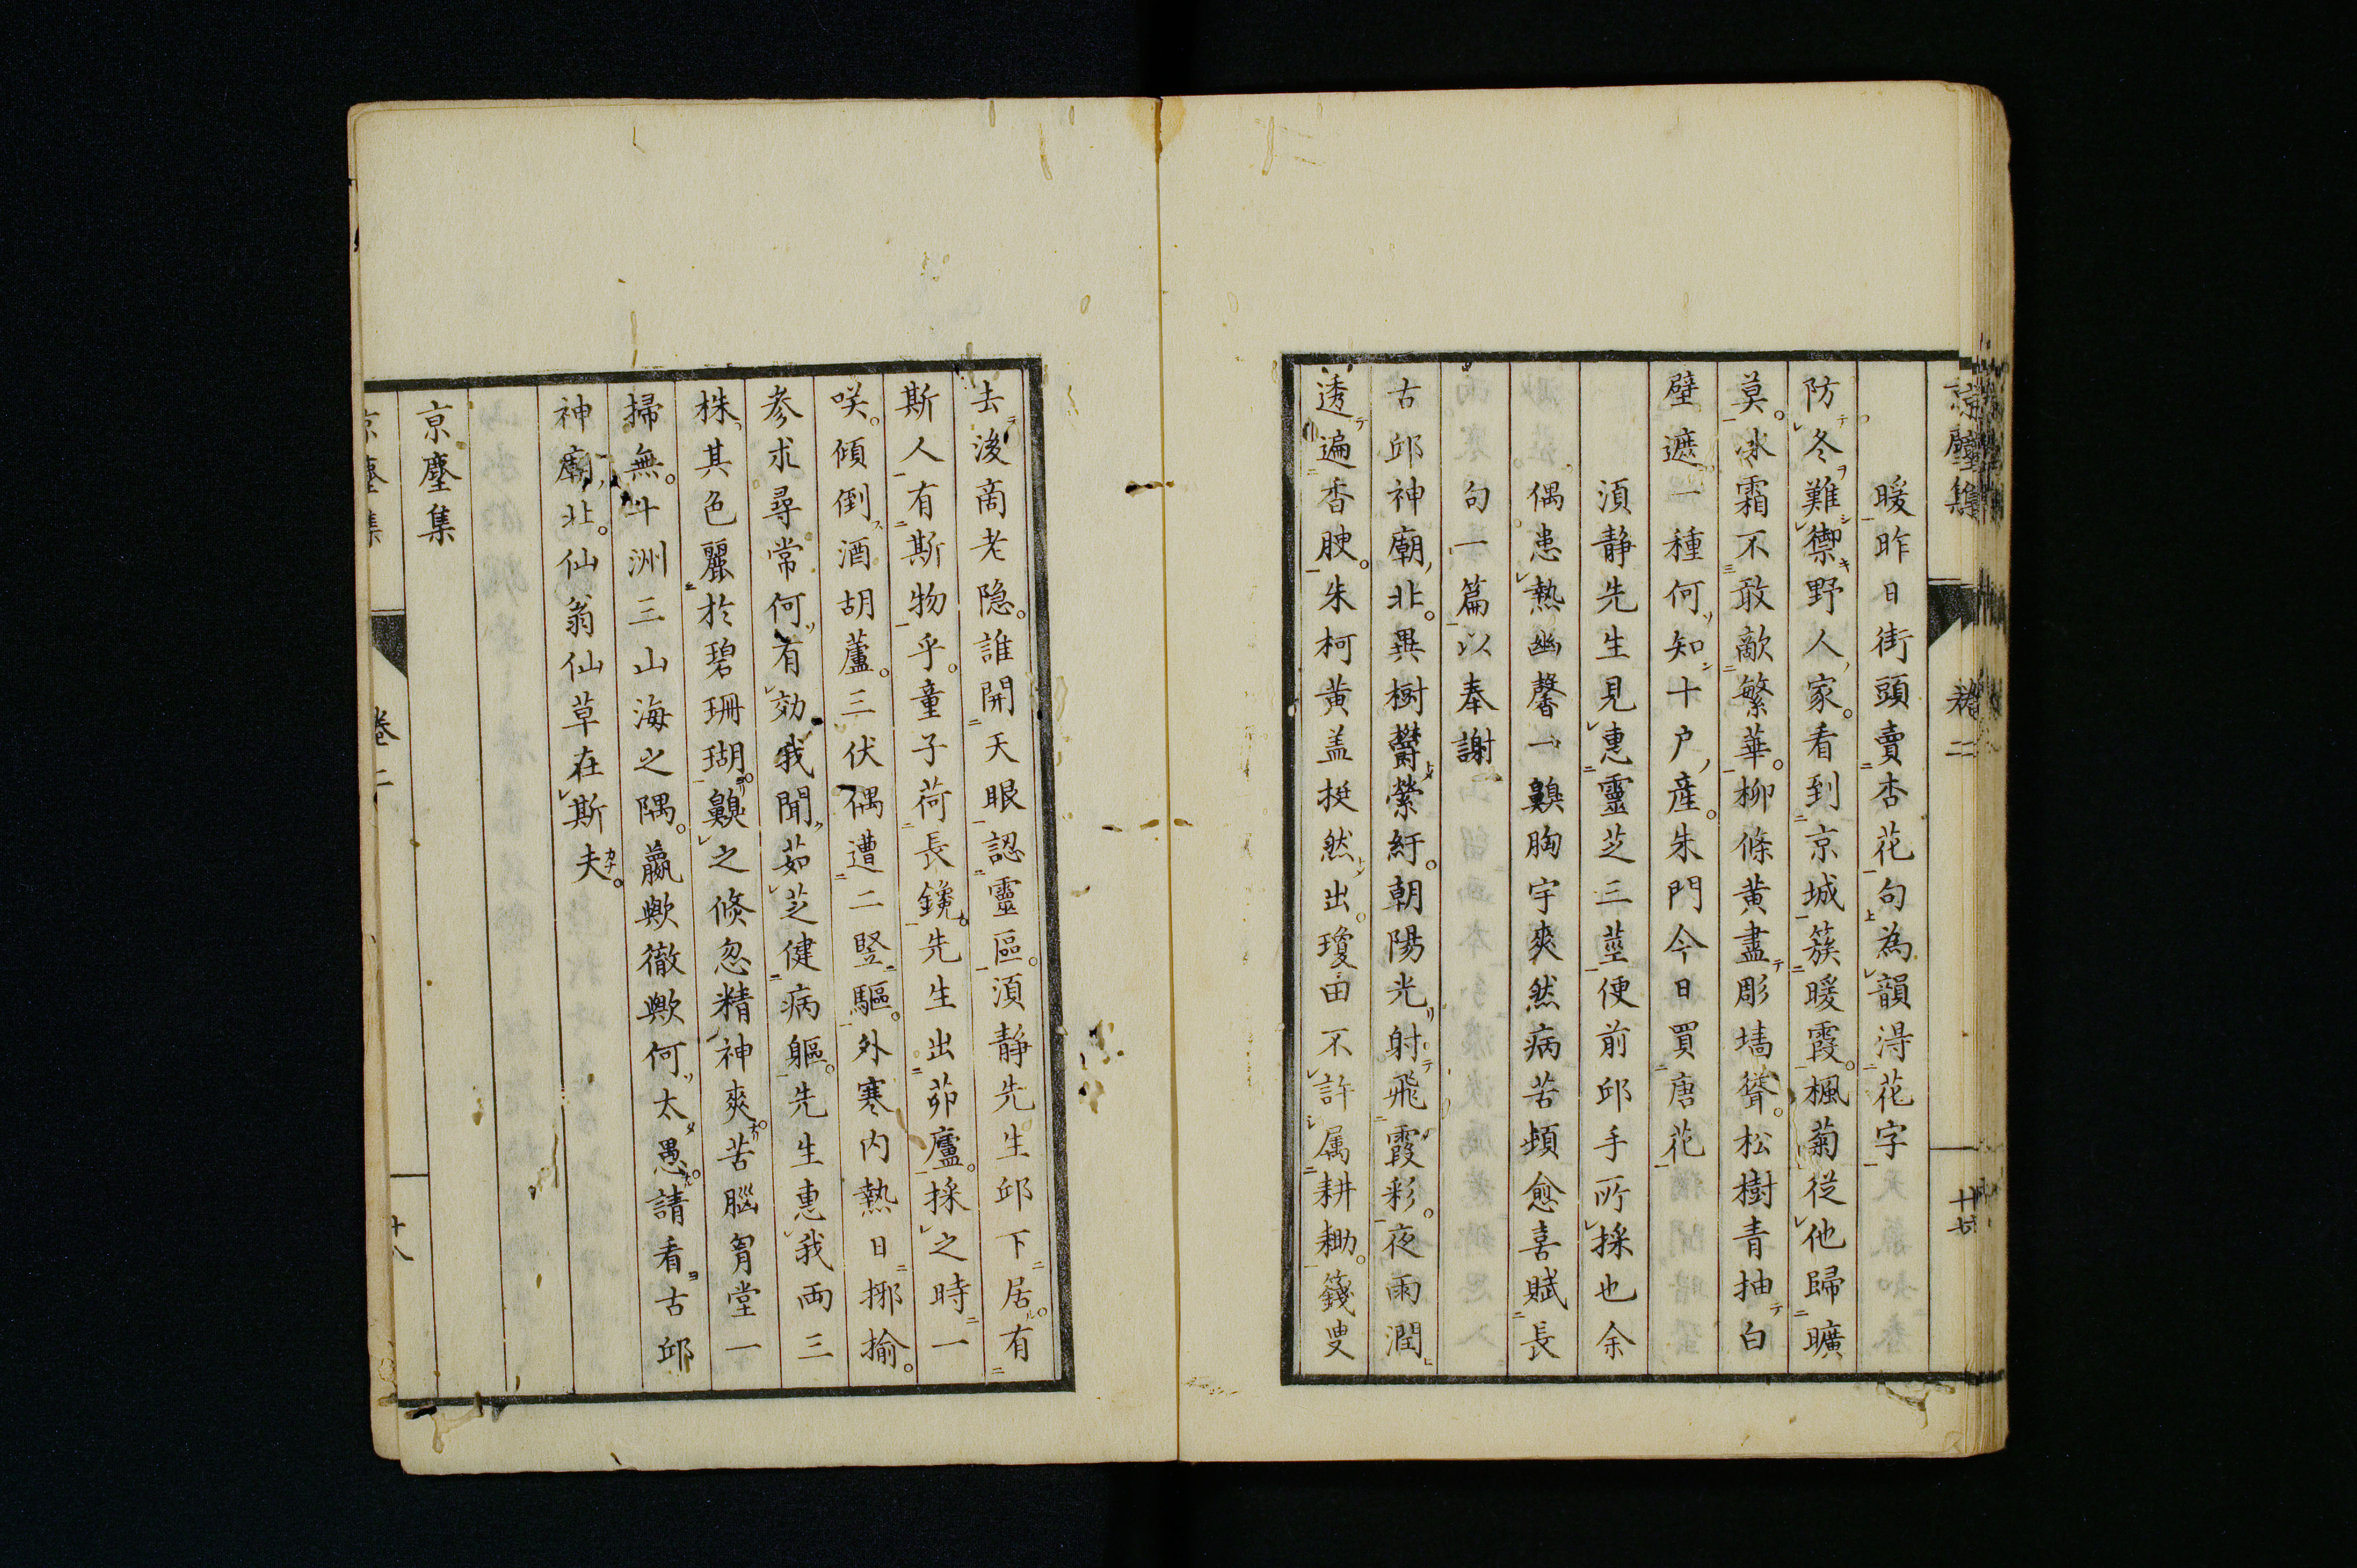 京塵集　卷二　十七
暖昨日街頭賣杏花句為韻得花字
防冬難禦野人家看到京城簇暖霞楓菊從他歸曠
莫冰霜不敢敵繁華柳條黃盡彫墻聳松樹青抽白
壁遮一種何知十戶産朱門今日買唐花
須靜先生見惠靈芝三莖便前邱手所採也余
偶患熱幽馨一齅胸宇爽然病苦頓愈喜賦長
句一篇以奉謝
古邱神廟北異樹鬱縈紆朝陽光射飛霞彩夜雨潤
透遍香腴朱柯黃盖挺然出瓊田不許属耕耡籛叟
去後商老隐誰開天眼認靈區須靜先生邱下居有
斯人有斯物乎童子荷長鑱先生出茆廬採之時一
咲傾倒酒胡蘆三伏偶遭二竪驅外寒內熱日揶揄
參求尋常何有効我聞茹芝健病軀先生惠我両三
株其色麗於碧珊瑚齅之倐忽精神爽苦腦胷堂一
掃無十洲三山海之隅嬴歟徹歟何太愚請看古邱
神廟北仙翁仙草在斯夫
京塵集
京塵集　卷二　十八